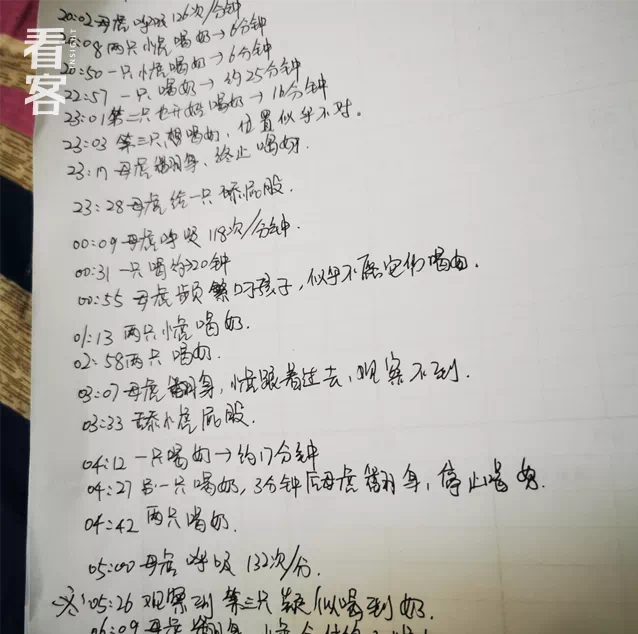 看客
INSIGHT
20:02 母虎呼吸 126次/分钟
08 两只小虎喝奶→6分钟
20:50 一只小虎喝奶→6分钟
22:57 一只喝奶→约25分钟
23:01 第二只也开始喝奶→16分钟
23:03 第三只想喝奶,位置似乎不对。
23:17 母虎翻身、终止喝奶。
23:28 母虎给一只舔屁股.
00:09 母虎呼吸 118次/分钟.
00:31 一只喝约20钟
00:55 母虎频繁叼孩子,似乎不愿它们喝奶.
01:13 两只小虎喝奶.
02:58 两只喝奶.
03:07 母虎翻身,小虎跟着过去,观察不到.
03:33 舔小虎屁股.
04:12 一只喝奶→约17分钟
04:27 另一只喝奶,3分钟后母虎翻身,停止喝奶.
04:42 两只喝奶.
05:00 母虎呼吸 132次/分.
※ 05:26 观察到第三只疑似喝到奶.
06:09 母虎翻身